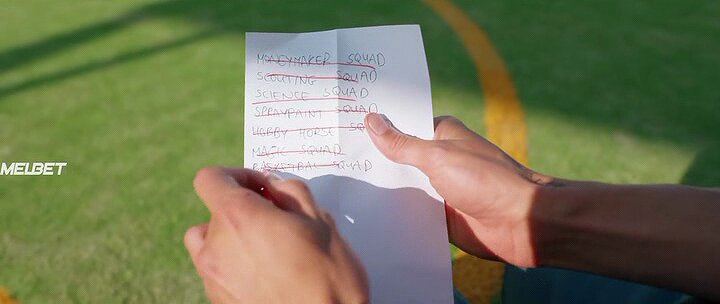 MONEYMAKER SQUAD
SCOUTING SQUAD
SCIENCE SQUAD
SPRAYPAINT SQUAD
HOBBY HORSE SQ
MAGIC SQUAD
BASKETBAL SQUAD
MELBET